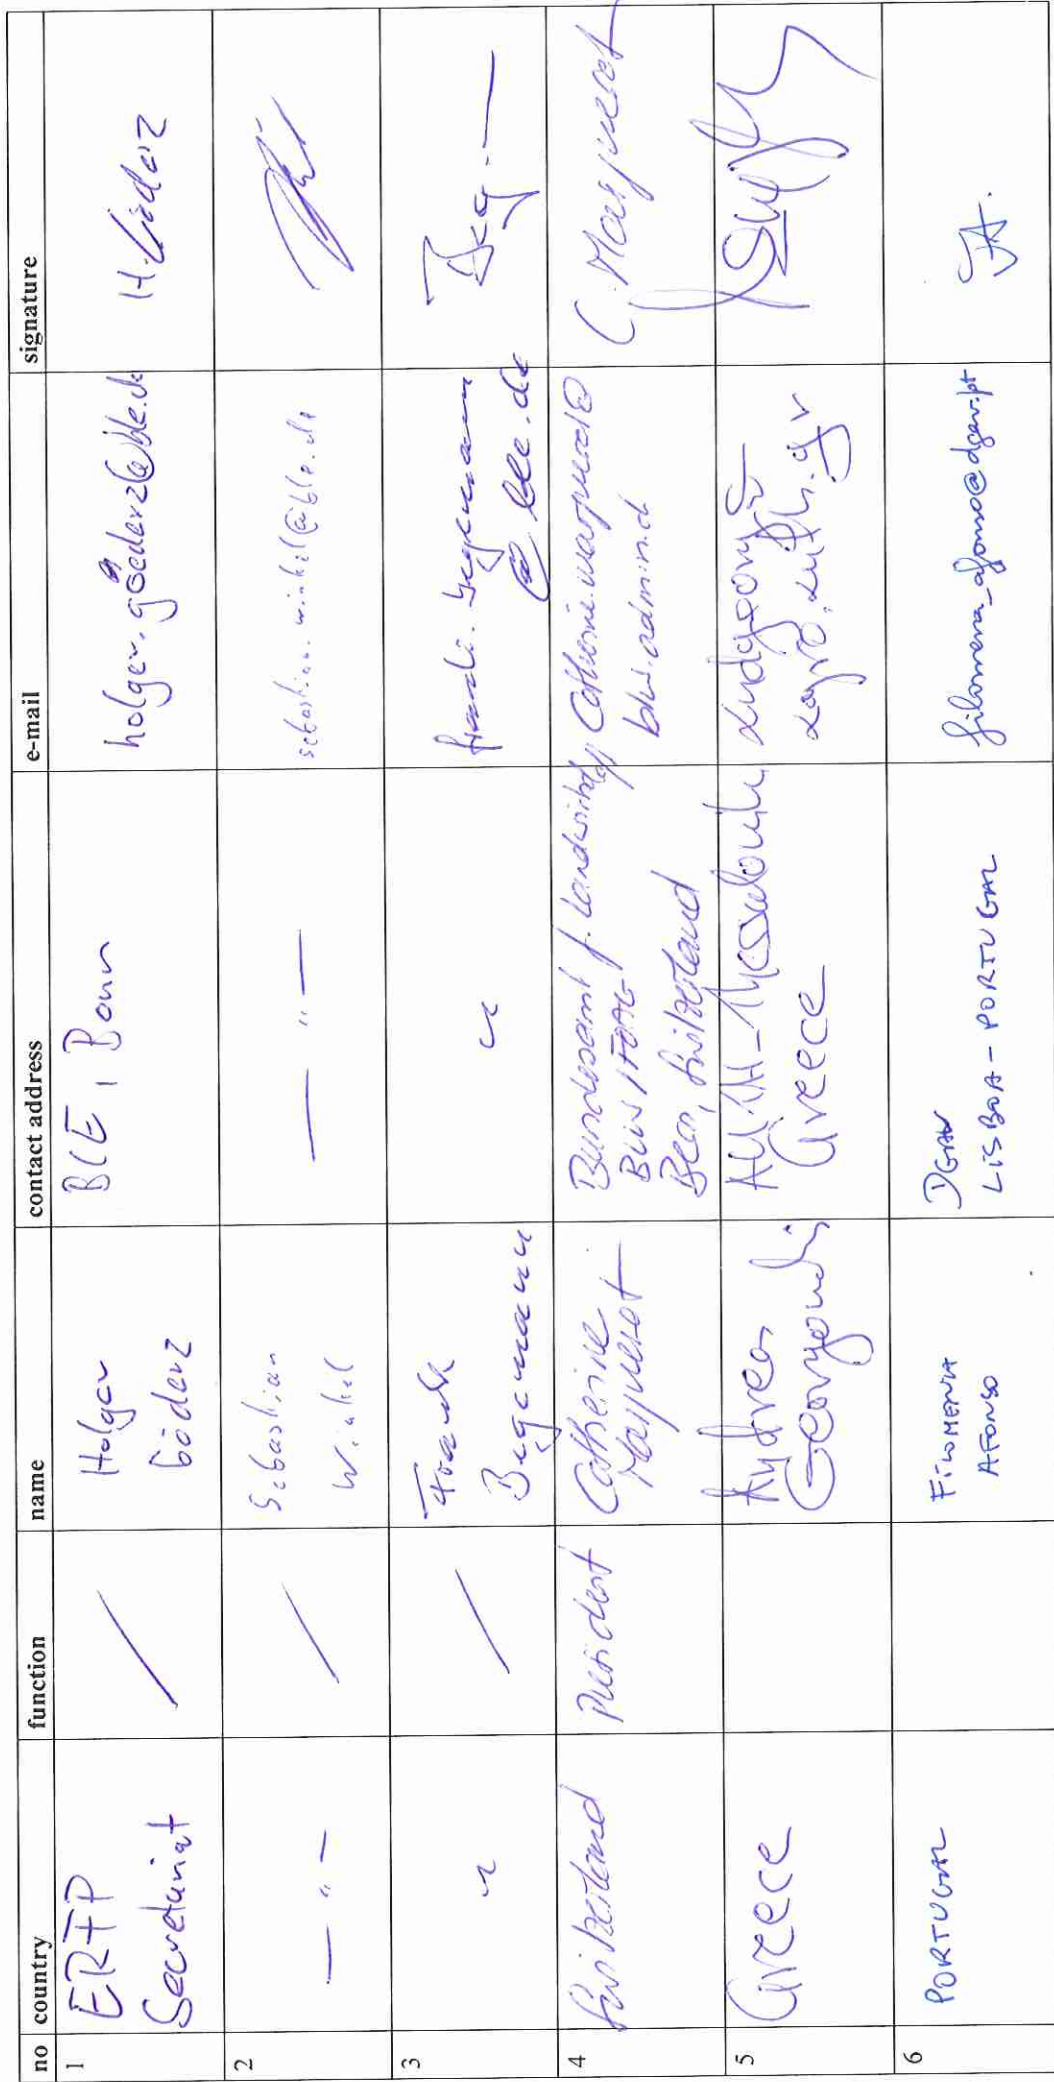 no country function name contact address e-mail signature
1 ERFP Secretariat / Holger Göderz BLE, Bonn holger.goederz@ble.de H. Göderz
2 — " — / Sebastian Winkel — " — sebastian.winkel@ble.de
3 " / Frank Begemann " frank.begemann@ble.de
4 Switzerland President Catherine Marguerat Bundesamt f. Landwirtschaft BLW/FOAG Bern, Switzerland C. Marguerat
5 Greece Andreas Georgoudis Greece
6 PORTUGAL FILOMENA AFONSO DGAV LISBOA - PORTUGAL filomena_afonso@dgav.pt FA.